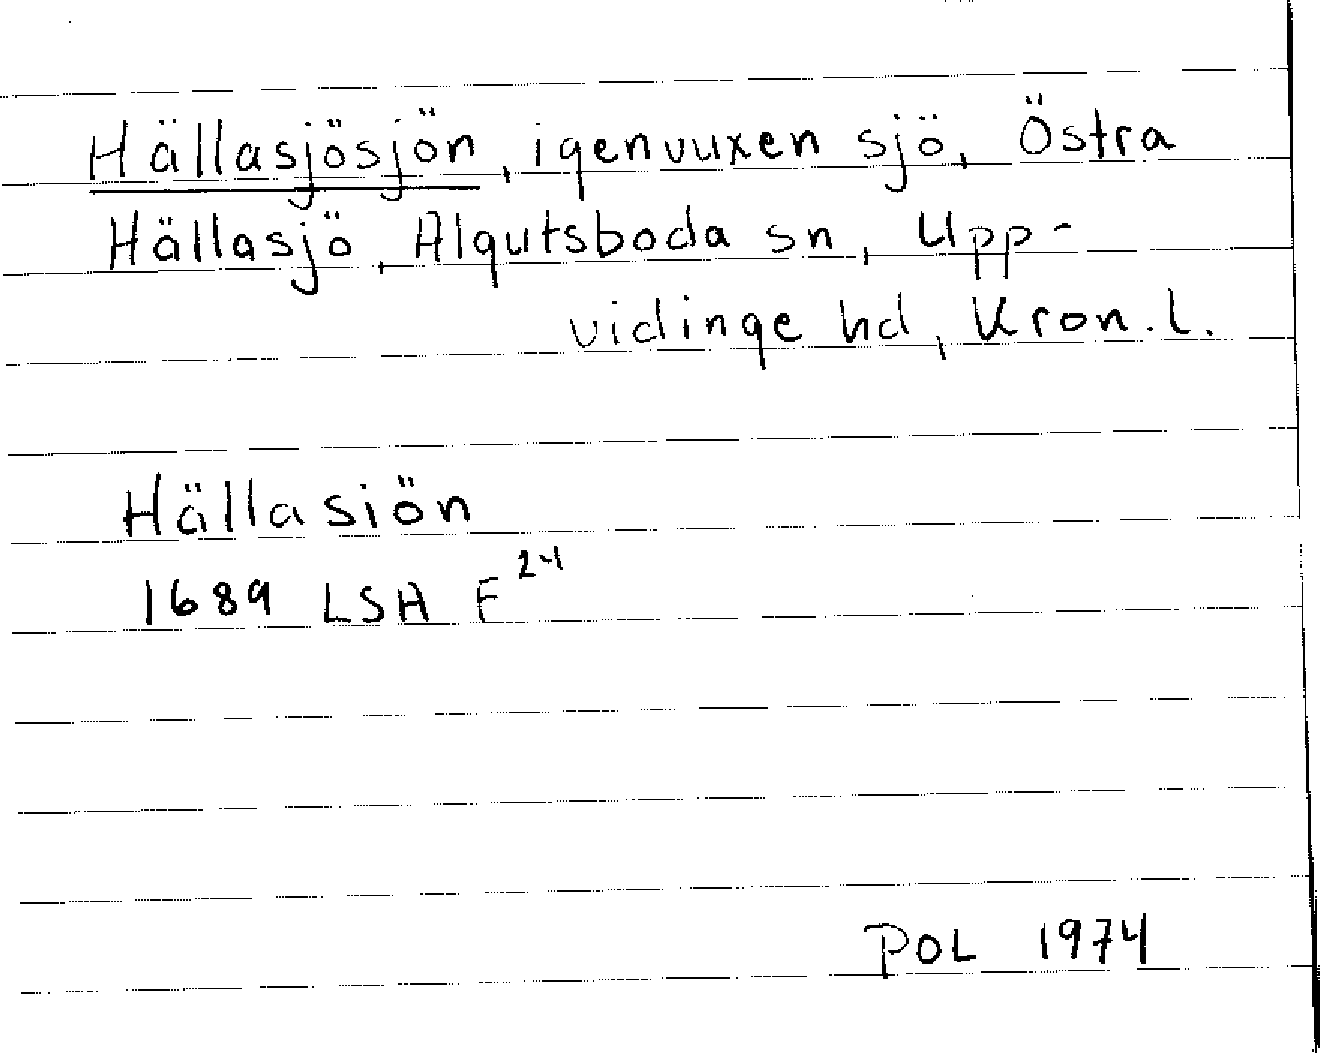 Hällasjösjön, igenvuxen sjö, Östra
Hällasjö, Algutsboda sn, Upp-
vidinge hd, Kron.l.
Hällasiön
1689 LSA F²⁴
POL 1974